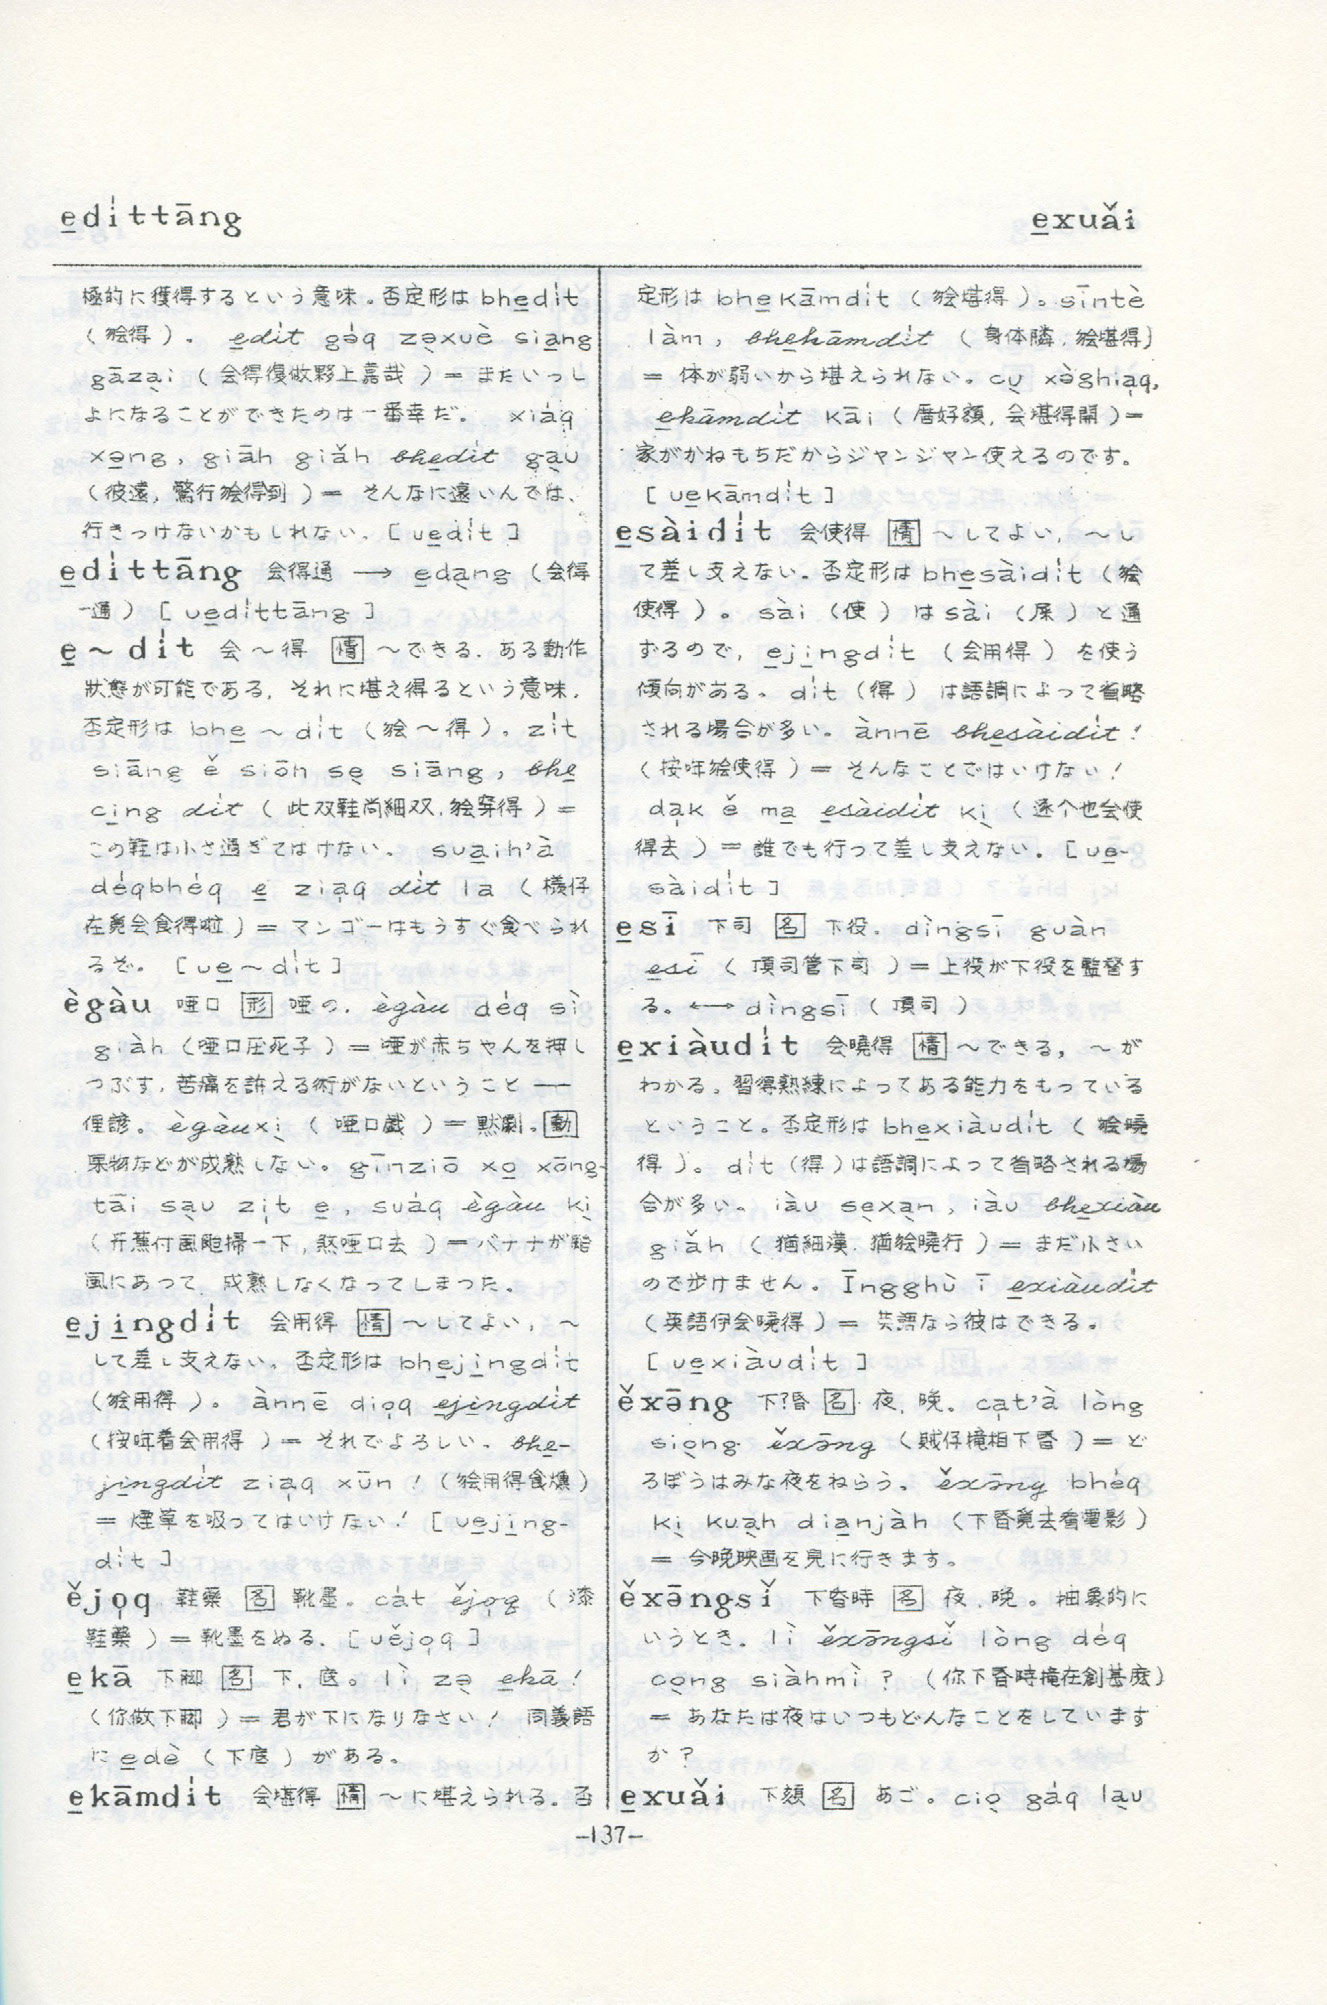 e̱di̍ttāng
e̱xuǎi
極的に獲得するという意味。否定形は bhe̱di̍t
(㑹得)。 e̱di̍t gə̍q zə̱xuè sia̱ng
gāza̱i (会得復做夥上嘉哉)= またいっし
よになることができたのは一番幸だ。 xiáq
xə̱ng, giāh giǎh bhe̱di̍t ga̱u
(彼遠,驚行㑹得到)= そんなに遠いんでは、
行きつけないかもしれない。[ue̱di̍t]
e̱di̍ttāng 会得通 → e̱da̱ng (会得
通)[ue̱di̍ttāng]
e̱~di̍t 会~得 情 ~できる.ある動作
狀態が可能である,それに堪え得るという意味.
否定形は bhe̱~di̍t (㑹~得)。zi̍t
siāng ě siōh se̱ siāng, bhe̱
ci̱ng di̍t (此双鞋尚細双,㑹穿得)=
この鞋は小さ過ぎてはけない。 sua̱ih'à
dè̍qbhè̍q e̱ zia̍q di̍t la (檨仔
在覓会食得啦)= マンゴーはもうすぐ食べられ
るぞ。 [ue̱~di̍t]
ègàu 啞口 形 啞の. ègàu dè̍q sì
giàh (啞口圧死子)= 啞が赤ちゃんを押し
つぶす,苦痛を訴える術がないということ ——
俚諺。ègàuxi̱ (啞口戯)= 黙劇。動
果物などが成熟しない。gīnziō xo̱ xōng-
tāi sa̱u zi̍t e̱, suáq ègàu ki̱
(芎蕉付風颱掃一下,煞啞口去)= バナナが颱
風にあつて,成熟しなくなってしまつた。
e̱ji̱ngdi̍t 会用得 情 ~してよい,~
して差し支えない。否定形は bhe̱ji̱ngdi̍t
(㑹用得)。ànnē dio̍q e̱ji̱ngdi̍t
(按哖着会用得)= それでよろしい。bhe̱-
ji̱ngdi̍t zia̍q xūn! (㑹用得食燻)
= 煙草を吸ってはいけない! [ue̱ji̱ng-
di̍t]
ějo̍q 鞋藥 名 靴墨。cát ějo̍q (漆
鞋藥)= 靴墨をぬる。[uějo̍q]
e̱kā 下脚 名 下,底。lì zə̱ e̱kā!
(你做下脚)= 君が下になりなさい! 同義語
に e̱dè (下底)がある。
e̱kāmdi̍t 会堪得 情 ~に堪えられる。否
定形は bhe̱kāmdi̍t (㑹堪得)。sīntè
làm, bhe̱kāmdi̍t (身体𦢊,㑹堪得)
= 体が弱いから堪えられない。cu̱ xə̀ghia̍q,
e̱kāmdi̍t kāi (厝好額,会堪得開)=
家がかねもちだからジャンジャン使えるのです。
[ue̱kāmdi̍t]
e̱sàidi̍t 会使得 情 ~してよい,~し
て差し支えない。否定形は bhe̱sàidi̍t (㑹
使得)。sài (使)は sài (屎)と通
ずるので, e̱ji̱ngdi̍t (会用得)を使う
傾向がある。di̍t (得)は語調によって省略
される場合が多い。ànnē bhe̱sàidi̍t!
(按哖㑹使得)= そんなことではいけない!
da̍k ě ma̱ e̱sàidi̍t ki̱ (逐个也会使
得去)= 誰でも行って差し支えない。[ue̱-
sàidi̍t]
e̱sī 下司 名 下役. dìngsī guàn
e̱sī (頂司管下司)= 上役が下役を監督す
る。←→ dìngsī (頂司)
e̱xiàudi̍t 会曉得 情 ~できる,~が
わかる。習得熟練によってある能力をもっている
ということ。否定形は bhe̱xiàudi̍t (㑹曉
得)。di̍t (得)は語調によって省略される場
合が多い。iàu se̱xa̱n, iàu bhe̱xiàu
giǎh (猶細漢,猶㑹曉行)= まだ小さい
ので歩けません。Īngghù ī e̱xiàudi̍t
(英語伊会曉得)= 英語なら彼はできる。
[ue̱xiàudi̍t]
ěxə̄ng 下昏 名 夜,晚。ca̍t'à lòng
sio̱ng ěxə̄ng (賊仔攏相下昏)= ど
ろぼうはみな夜をねらう。ěxə̄ng bhè̍q
ki̱ kua̱h dia̱njàh (下昏覓去看電影)
= 今晩映画を見に行きます。
ěxə̄ngsǐ 下昏時 名 夜,晚。抽象的に
いうとき。lì ěxə̄ngsǐ lòng dè̍q
co̱ng siàhmì? (你下昏時攏在創甚麼)
= あなたは夜はいつもどんなことをしています
か?
e̱xuǎi 下頦 名 あご。cio̱ gáq la̱u
-137-